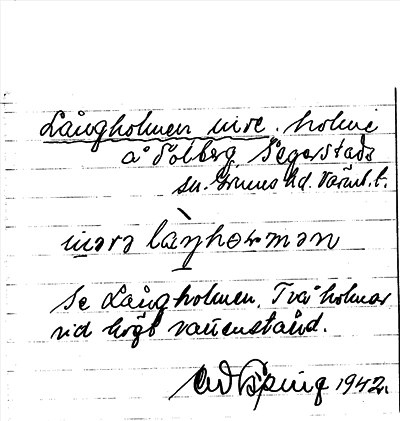 Långholmen inre, holme
å Tolberg, Segerstads
sn. Grums hd. Värml. l.
ɩnərə låŋhɵlmən
Se Långholmen. Två holmar
vid högt vattenstånd.
1942.